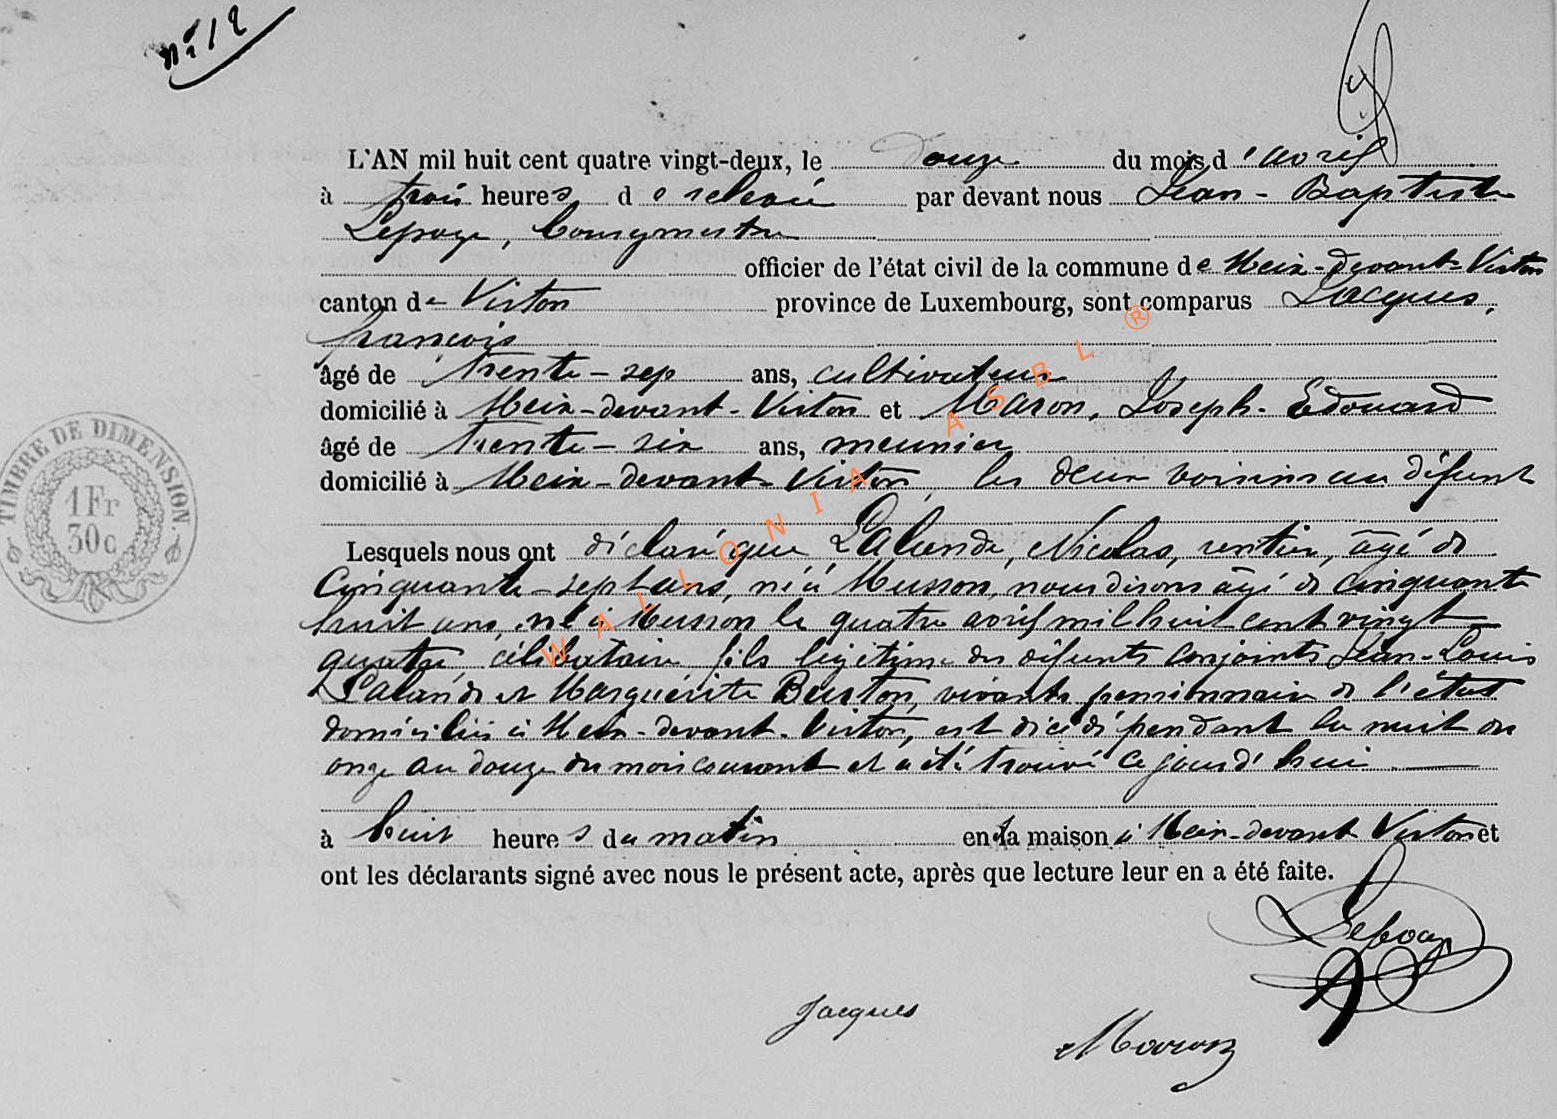 n° 12
L'AN mil huit cent quatre vingt-deux, le douze du mois d'avril
à trois heures de relevée par devant nous Jean-Baptiste
Lepage, bourgmestre
officier de l'état civil de la commune de Meix-devant-Virton
canton de Virton province de Luxembourg, sont comparus Jacques,
françois
âgé de trente-sep ans, cultivateur
domicilié à Meix-devant-Virton et Maron, Joseph-Edouard
âgé de trente-six ans, meunier
domicilié à Meix-devant-Virton, les deux voisins au défunt
Lesquels nous ont déclaré que Lalande, Nicolas, rentier, âgé de
Cinquante-sept ans, né à Musson, nous disons âgé de cinquante
huit ans, né à Musson le quatre avril mil huit cent vingt
quatre, célibataire fils légitime des défunts conjoints Jean-Louis
Lalande et Marguérite Burton, vivants pensionnaire de l'état
domiciliés à Meix-devant-Virton, est décédé pendant la nuit du
onze au douze du mois courant et a été trouvé ce jourd'hui
à huit heures du matin en la maison à Meix-devant Virton et
ont les déclarants signé avec nous le présent acte, après que lecture leur en a été faite.
Lepage
Jacques
Maron
TIMBRE DE DIMENSION
1 Fr
30c
WALLONIA ASBL ®